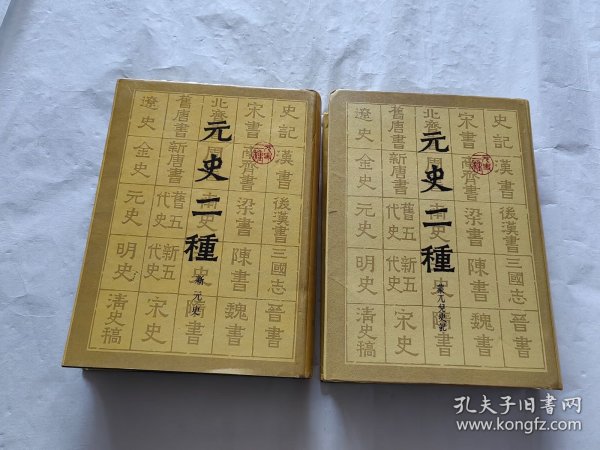 元史二種
新元史
史記
漢書
後漢書
三國志
晉書
宋書
南齊書
梁書
陳書
魏書
北齊書
隋書
舊唐書
新唐書
舊五代史
新五代史
宋史
遼史
金史
元史
明史
清史稿
元史二種
蒙兀兒史記
史記
漢書
後漢書
三國志
晉書
宋書
南齊書
梁書
陳書
魏書
北齊書
隋書
舊唐書
新唐書
舊五代史
新五代史
宋史
遼史
金史
元史
明史
清史稿
孔夫子旧书网
www.kongfz.com